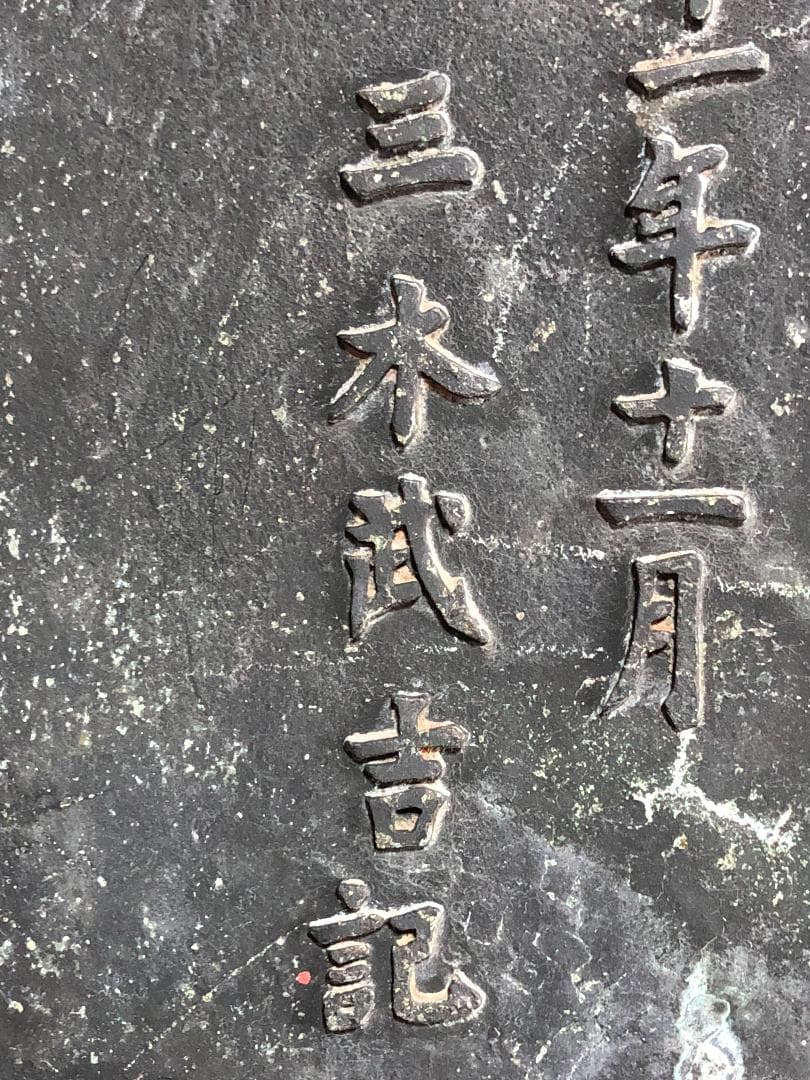 十一年十一月
三木武吉記